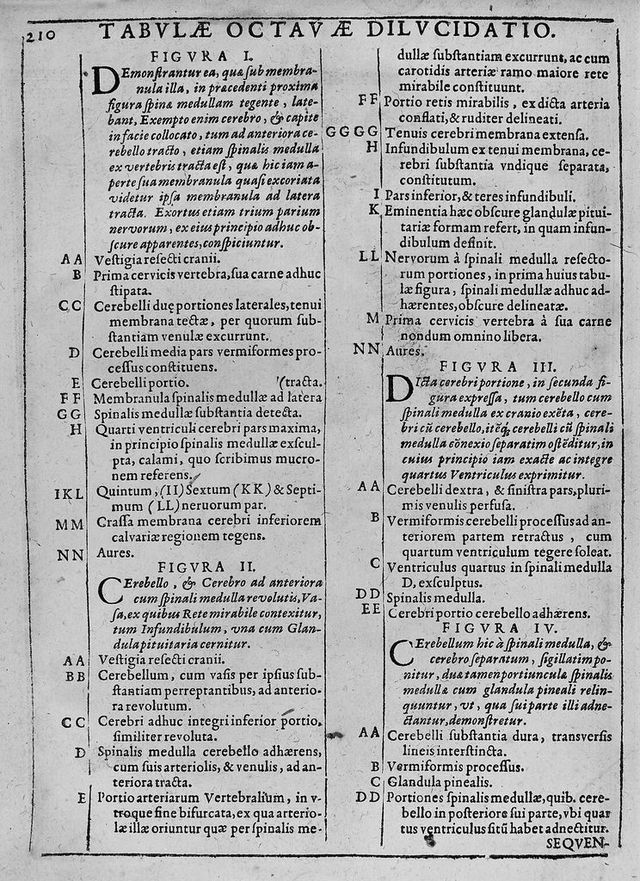 210
TABVLÆ OCTAVÆ DILVCIDATIO.
FIGVRA I.
DEmonſtrantur ea, quæ ſub membra-
nula illa, in præcedenti proxima
figura ſpinæ medullam tegente, late-
bant, Exempto enim cerebro, & capite
in facie collocato, tum ad anteriora ce-
rebello tracto, etiam ſpinalis medulla
ex vertebris tracta eſt, quæ hic iam a-
perte ſua membranula quaſi excoriata
videtur ipſa membranula ad latera
tracta. Exortus etiam trium parium
nervorum, ex eius principio adhuc ob-
ſcure apparentes, conſpiciuntur.
A A Veſtigia reſecti cranii.
B Prima cervicis vertebra, ſua carne adhuc
ſtipata.
C C Cerebelli duę portiones laterales, tenui
membrana tectæ, per quorum ſub-
ſtantiam venulæ excurrunt.
D Cerebelli media pars vermiformes pro-
ceſſus conſtituens.
E Cerebelli portio. (tracta.
F F Membranula ſpinalis medullæ ad latera
G G Spinalis medullæ ſubſtantia detecta.
H Quarti ventriculi cerebri pars maxima,
in principio ſpinalis medullæ exſcul-
pta, calami, quo ſcribimus mucro-
nem referens.
I K L Quintum, (II) Sextum (KK) & Septi-
mum (LL) neruorum par.
M M Craſſa membrana cerebri inferiorem
calvariæ regionem tegens.
N N Aures.
FIGVRA II.
CErebello, & Cerebro ad anteriora
cum ſpinali medulla revolutis, Va-
ſa, ex quibus Rete mirabile contexitur,
tum Infundibulum, vna cum Glan-
dula pituitaria cernitur.
A A Veſtigia reſecti cranii.
B B Cerebellum, cum vaſis per ipſius ſub-
ſtantiam perreptantibus, ad anterio-
ra revolutum.
C C Cerebri adhuc integri inferior portio,
ſimiliter revoluta.
D Spinalis medulla cerebello adhærens,
cum ſuis arteriolis, & venulis, ad an-
teriora tracta.
E Portio arteriarum Vertebralium, in v-
troque fine bifurcata, ex qua arterio-
læ illæ oriuntur quæ per ſpinalis me-
dullæ ſubſtantiam excurrunt, ac cum
carotidis arteriæ ramo maiore rete
mirabile conſtituunt.
F F Portio retis mirabilis, ex dicta arteria
conflati, & ruditer delineati.
G G G G Tenuis cerebri membrana extenſa.
H Infundibulum ex tenui membrana, ce-
rebri ſubſtantia vndique ſeparata,
conſtitutum.
I Pars inferior, & teres infundibuli.
K Eminentia hæc obſcure glandulæ pitui-
tariæ formam refert, in quam infun-
dibulum definit.
L L Nervorum à ſpinali medulla reſecto-
rum portiones, in prima huius tabu-
læ figura, ſpinali medullæ adhuc ad-
hærentes, obſcure delineatæ.
M Prima cervicis vertebra à ſua carne
nondum omnino libera.
N N Aures.
FIGVRA III.
DIcta cerebri portione, in ſecunda fi-
gura expreſſa, tum cerebello cum
ſpinali medulla ex cranio exẽta, cere-
bri cũ cerebello, itẽq́; cerebelli cũ ſpinali
medulla cõnexio ſeparatim oſtẽditur, in
cuius principio iam exacte ac integre
quartus Ventriculus exprimitur.
A A Cerebelli dextra, & ſiniſtra pars, pluri-
mis venulis perfuſa.
B Vermiformis cerebelli proceſſus ad an-
teriorem partem retractus, cum
quartum ventriculum tegere ſoleat.
C Ventriculus quartus in ſpinali medulla
D, exſculptus.
D D Spinalis medulla.
E E Cerebri portio cerebello adhærens.
FIGVRA IV.
CErebellum hic à ſpinali medulla, &
cerebro ſeparatum, ſigillatim po-
nitur, duæ tamen portiunculæ ſpinalis
medullæ cum glandula pineali relin-
quuntur, vt, qua ſui parte illi adne-
ctantur, demonſtretur.
A A Cerebelli ſubſtantia dura, transverſis
lineis interſtincta.
B Vermiformis proceſſus.
C Glandula pinealis.
D D Portiones ſpinalis medullæ, quib. cere-
bello in poſteriore ſui parte, vbi quar
tus ventriculus ſitũ habet adnectitur.
SEQVEN-